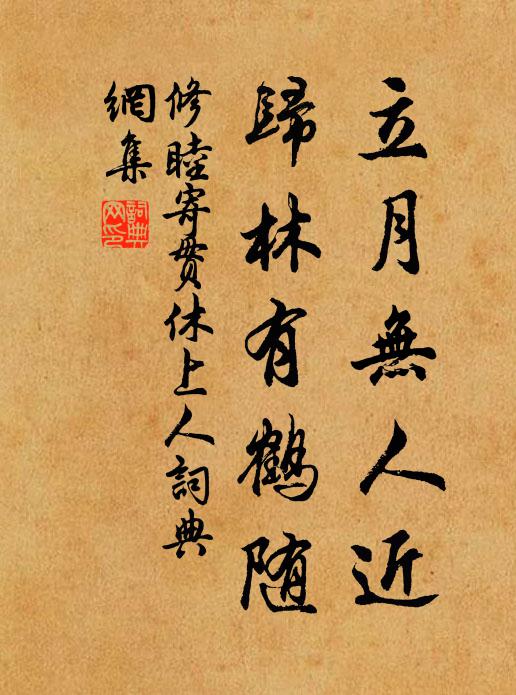 立月無人近
歸林有鶴随
修睦寄貫休上人詞典
網集
詞典网印